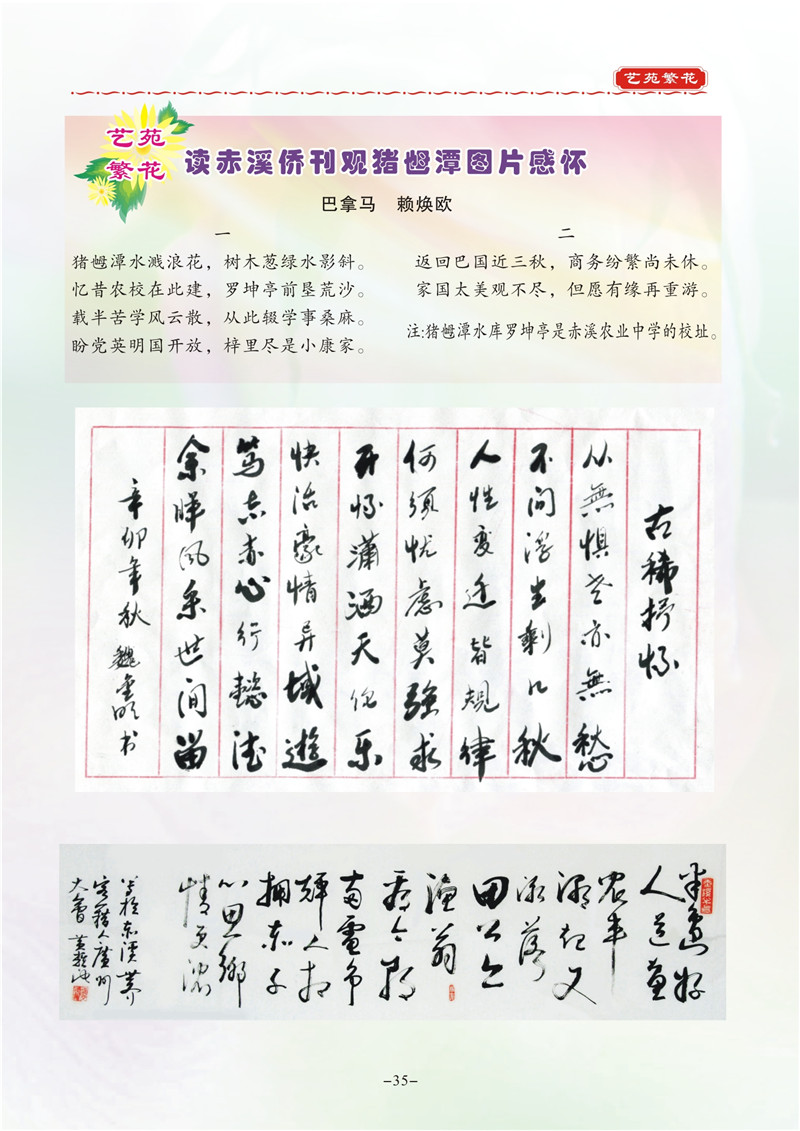 艺苑繁花
艺苑
繁花
读赤溪侨刊观猪乸潭图片感怀
巴拿马 赖焕欧
一
猪乸潭水溅浪花，树木葱绿水影斜。
忆昔农校在此建，罗坤亭前垦荒沙。
载半苦学风云散，从此辍学事桑麻。
盼党英明国开放，梓里尽是小康家。
二
返回巴国近三秋，商务纷繁尚未休。
家国太美观不尽，但愿有缘再重游。
注:猪乸潭水库罗坤亭是赤溪农业中学的校址。
古稀抒怀
从無惧老亦無愁
不问浮生剩几秋
人性变迁皆规律
何须忧虑莫强求
开怀潇洒天伦乐
快活豪情异域遊
笃志赤心行懿德
余晖风采世间留
辛卯年秋 魏金明书
半岛好
人道
农丰
潮起又
潮落
田公
渔翁
南
拥赤子
心思乡
情更浓
-35-